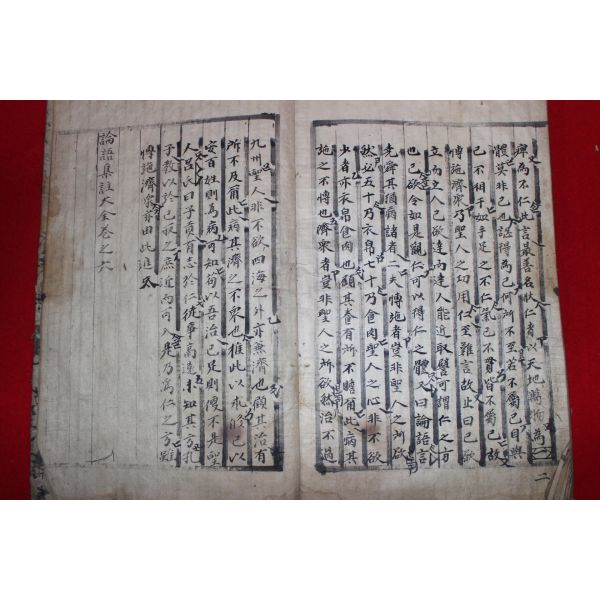 痺為不仁此言最善名狀仁者以天地萬物為一
體莫非己也認得為己何所不至若不屬己自與
己不相干如手足之不仁氣己不貫皆不屬己故
博施濟衆乃聖人之功用仁至難言故止曰己欲
立而立人己欲達而達人能近取譬可謂仁之方
也已欲令如是觀仁可以得仁之體又曰論語言
堯舜其猶病諸者二夫博施者豈非聖人之所欲
然必五十乃衣帛七十乃食肉聖人之心非不欲
少者亦衣帛食肉也顧其養有所不贍爾此病其
施之不博也濟衆者豈非聖人之所欲然治不過
九州聖人非不欲四海之外亦兼濟也顧其治有
所不及爾此病其濟之不衆也推此以求修己以
安百姓則為病可知苟以吾治己足則便不是聖
人呂氏曰子貢有志於仁徒事高遠未知其方孔
子教以於己取之庶近而可入是乃為仁之方雖
博施濟衆亦由此進
論語集註大全卷之六